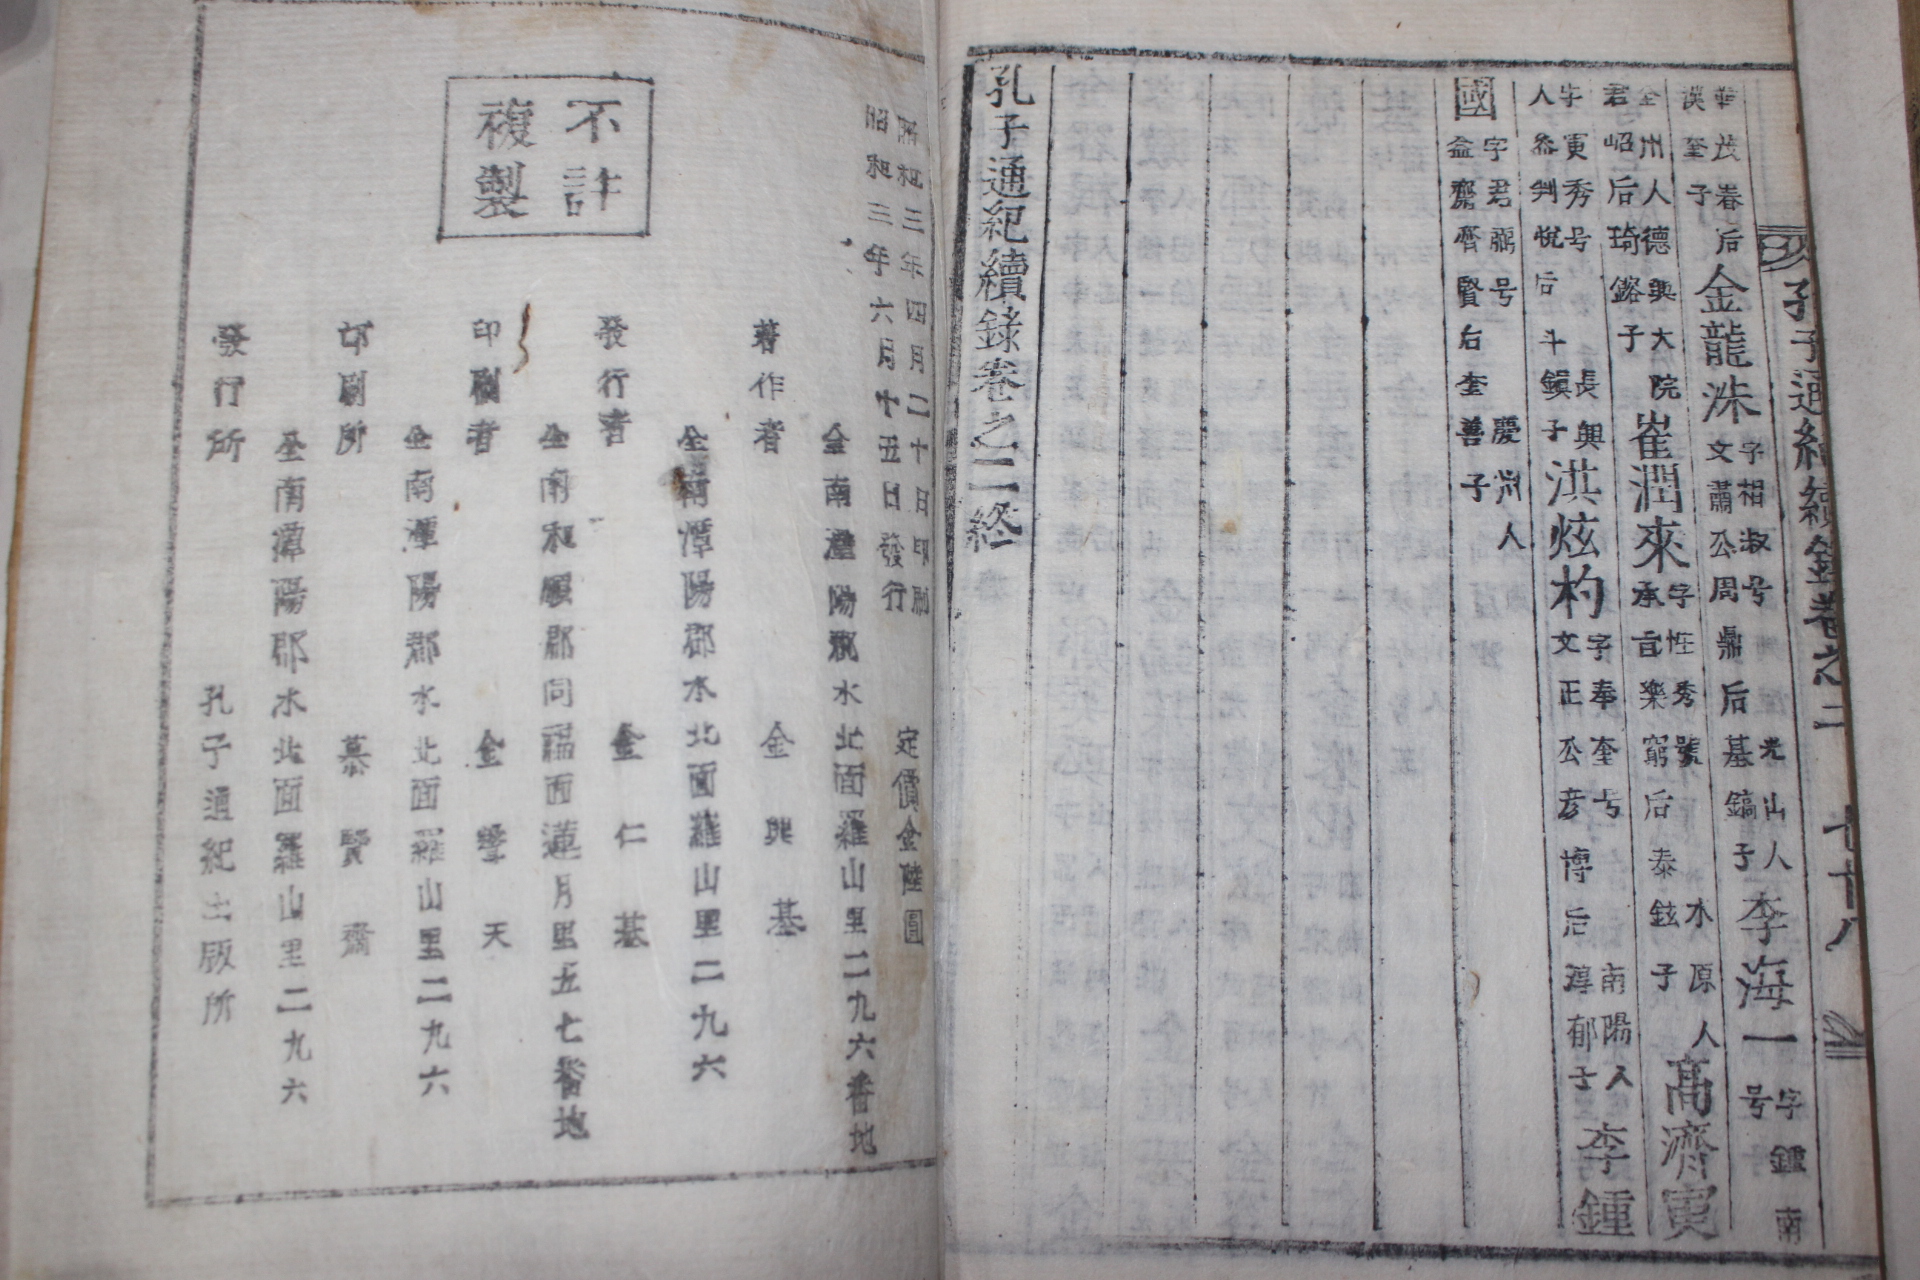 孔子通紀續錄卷之二 七十八
華茂春后
漢奎子
金龍洙
字相淑号
文肅公周鼎后基鎬子
光山人
李海一
字鍾南
号
全州人德興大院
君岹后琦鎔子
崔潤來
字性秀號
承旨樂窮后泰鉉子
水原人
高濟寅
字寅秀号
人參判悅后斗鎮子
長興
洪炫杓
字奉奎号
文正公彦博后淳郁子
南陽人
李鍾
國
字君鼎号
益齋齊賢后奎善子
慶州人
孔子通紀續錄卷之二終
昭和三年四月二十日印刷
昭和三年六月十五日發行
定價金陸圓
全南潭陽郡水北面羅山里二九六番地
著作者 金興基
全南潭陽郡水北面羅山里二九六
發行者 金仁基
全南和順郡同福面蓮月里五七番地
印刷者 金學天
全南潭陽郡水北面羅山里二九六
印刷所 慕賢齋
全南潭陽郡水北面羅山里二九六
發行所 孔子通紀出版所
不許
複製